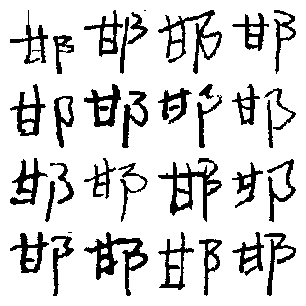 邯邯邯邯
邯邯邯邯
邯邯邯邯
邯邯邯邯